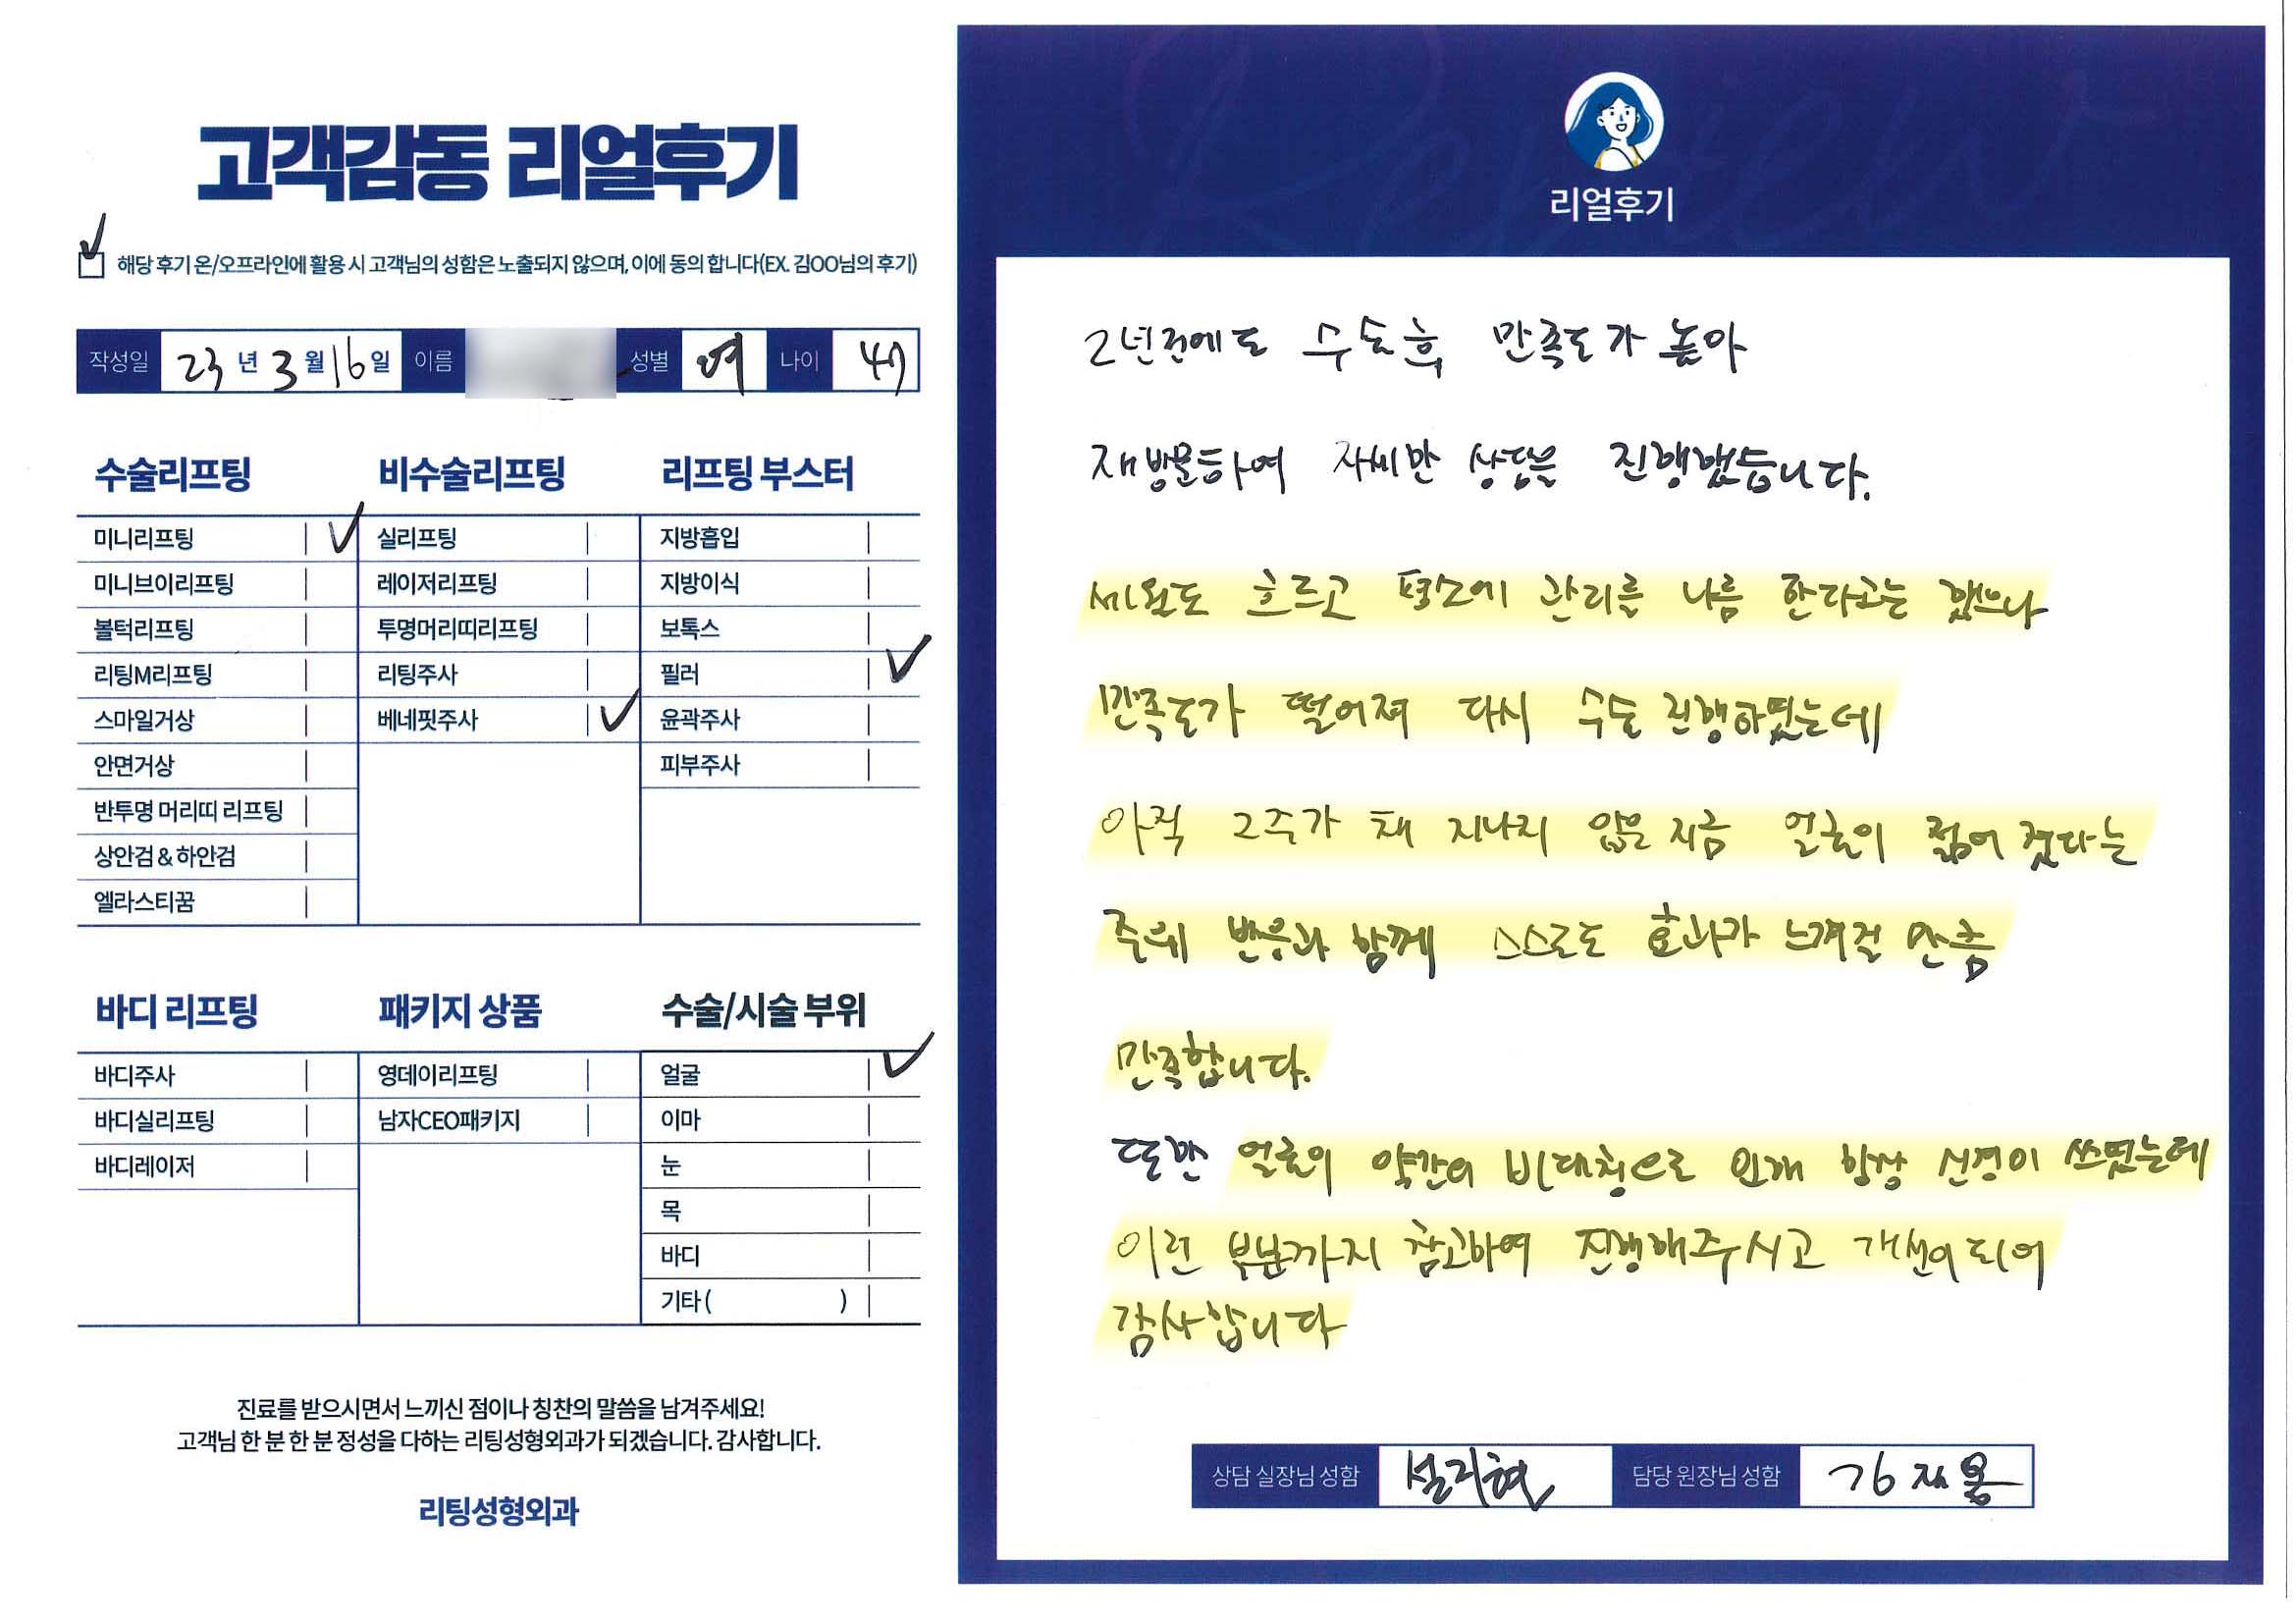 고객감동 리얼후기
해당 후기 온/오프라인에 활용 시 고객님의 성함은 노출되지 않으며, 이에 동의 합니다(EX. 김OO님의 후기)
작성일 23년 3월 16일 이름 성별 여 나이 47
수술리프팅
미니리프팅
미니브이리프팅
볼턱리프팅
리팅M리프팅
스마일거상
안면거상
반투명 머리띠 리프팅
상안검 & 하안검
엘라스티꿈
비수술리프팅
실리프팅
레이저리프팅
투명머리띠리프팅
리팅주사
베네핏주사
리프팅 부스터
지방흡입
지방이식
보톡스
필러
윤곽주사
피부주사
바디 리프팅
바디주사
바디실리프팅
바디레이저
패키지 상품
영데이리프팅
남자CEO패키지
수술/시술 부위
얼굴
이마
눈
목
바디
기타 ( )
진료를 받으시면서 느끼신 점이나 칭찬의 말씀을 남겨주세요!
고객님 한 분 한 분 정성을 다하는 리팅성형외과가 되겠습니다. 감사합니다.
리팅성형외과
리얼후기
2년전에도 수술후 만족도가 높아
재방문하여 자세한 상담을 진행했습니다.
세월도 흐르고 평소에 관리를 나름 한다고는 했으나
만족도가 떨어져 다시 수술 진행하였는데
아직 2주가 채 지나지 않은 지금 얼굴이 젊어 졌다는
주위 반응과 함께 스스로도 효과가 느껴질 만큼
만족합니다.
또한 얼굴의 약간의 비대칭으로 인해 항상 신경이 쓰였는데
이런 부분까지 참고하여 진행해주시고 개선이 되어
감사합니다
상담 실장님 성함 설지현 담당 원장님 성함 재용